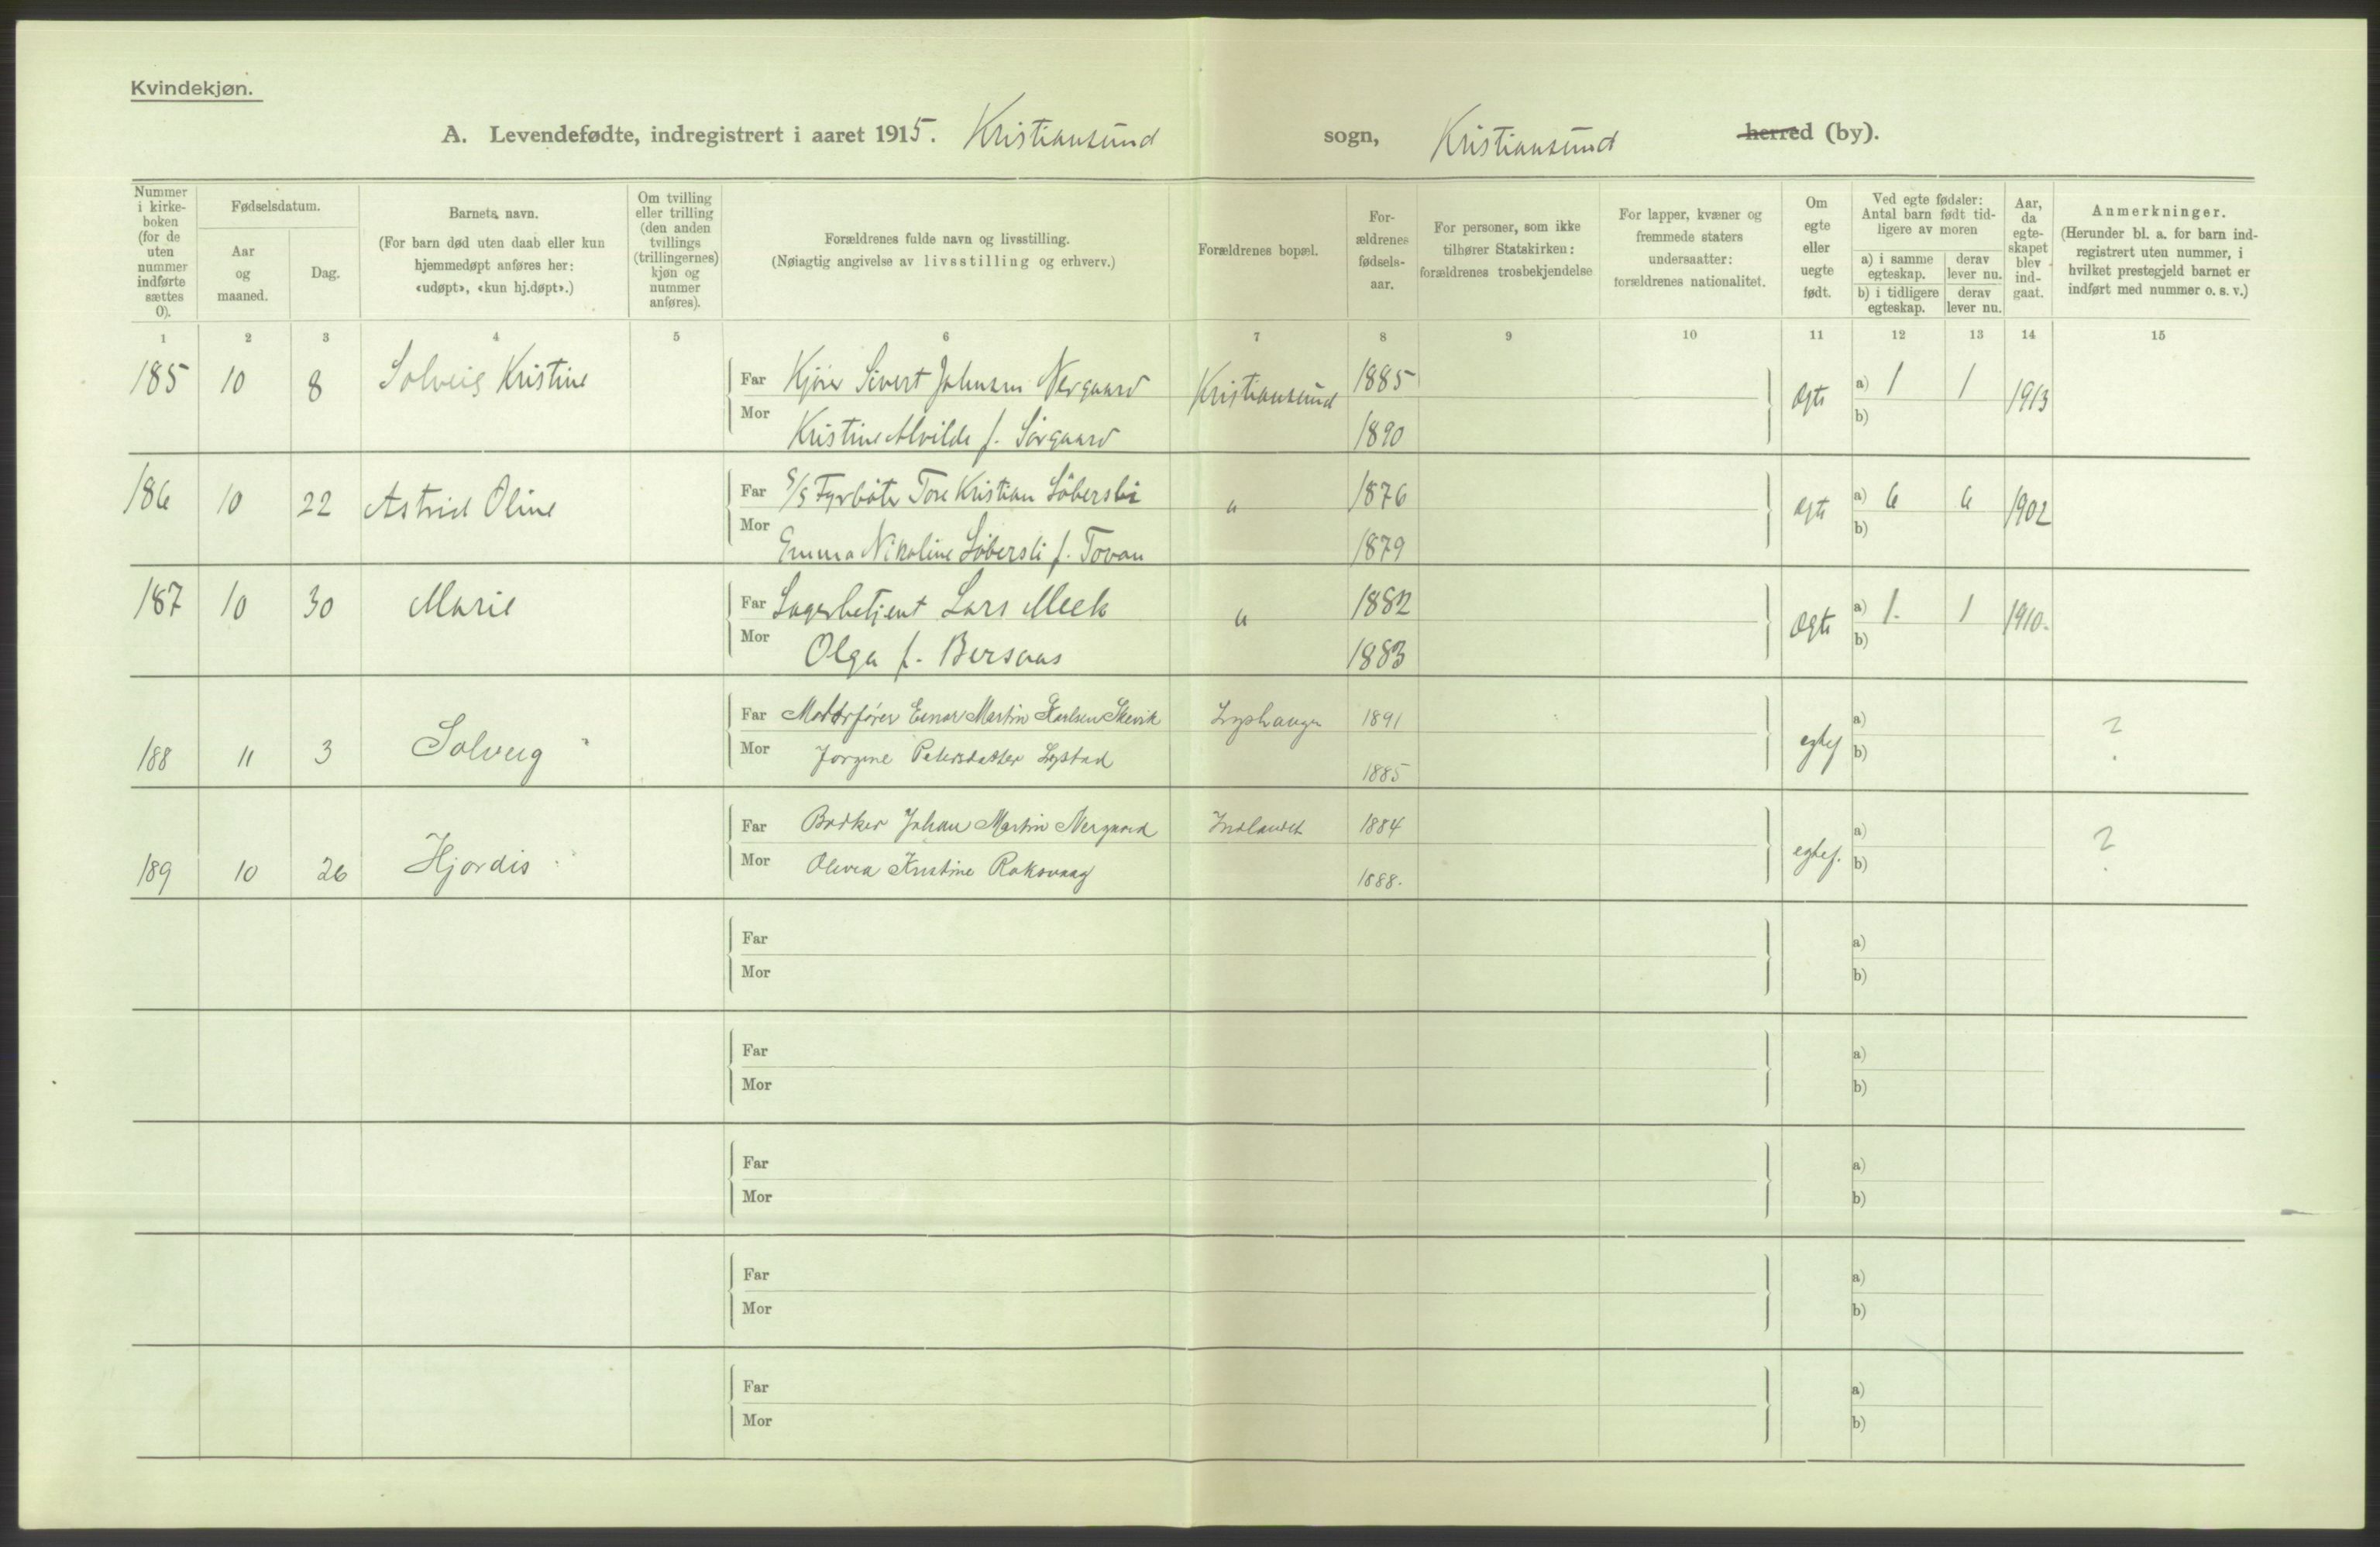 Kvindekjøn.
A. Levendefødte, indregistrert i aaret 1915. Kristiansund sogn, Kristiansund herred (by).
Nummer i kirkeboken (for de uten nummer indførte sættes 0).
Fødselsdatum.
Aar og maaned.
Dag.
Barnets navn.
(For barn død uten daab eller kun hjemmedøpt anføres her: «udøpt», «kun hj.døpt».)
Om tvilling eller trilling (den anden tvillings (trillingernes) kjøn og nummer anføres).
Forældrenes fulde navn og livsstilling.
(Nøiagtig angivelse av livsstilling og erhverv.)
Forældrenes bopæl.
Forældrenes fødselsaar.
For personer, som ikke tilhører Statskirken: forældrenes trosbekjendelse
For lapper, kvæner og fremmede staters undersaatter: forældrenes nationalitet.
Om egte eller uegte født.
Ved egte fødsler: Antal barn født tidligere av moren
a) i samme egteskap.
derav lever nu.
b) i tidligere egteskap.
derav lever nu.
Aar, da egteskapet blev indgaat.
Anmerkninger.
(Herunder bl. a. for barn indregistrert uten nummer, i hvilket prestegjeld barnet er indført med nummer o. s. v.)
1 2 3 4 5 6 7 8 9 10 11 12 13 14 15
185 10 8 Solveig Kristine Far Kjører Sivert Johnsen Nergaard Kristiansund 1885 Egte a) 1 1 1913
Mor Kristine Alvilde f. Sørgaard 1890 b)
186 10 22 Astrid Oline Far S/S Fyrbøter Tore Kristian Löbersli " 1876 Egte a) 6 6 1902
Mor Emma Nikoline Löbersli f. Tovan 1879 b)
187 10 30 Marie Far Lagerbetjent Lars Meek " 1882 Egte a) 1. 1 1910.
Mor Olga f. Bersaas 1883 b)
188 11 3 Solveig Far Motorfører Einar Martin Karlsen Skevik 1891 egtef a) ?
Mor Jorgine Petersdatter Lystad 1885 b)
189 10 26 Hjordis Far Bødker Johan Martin Nergaard Indlandet 1884 egtef. a) ?
Mor Olevia Kristine Roksvaag 1888. b)
Far a)
Mor b)
Far a)
Mor b)
Far a)
Mor b)
Far a)
Mor b)
Far a)
Mor b)